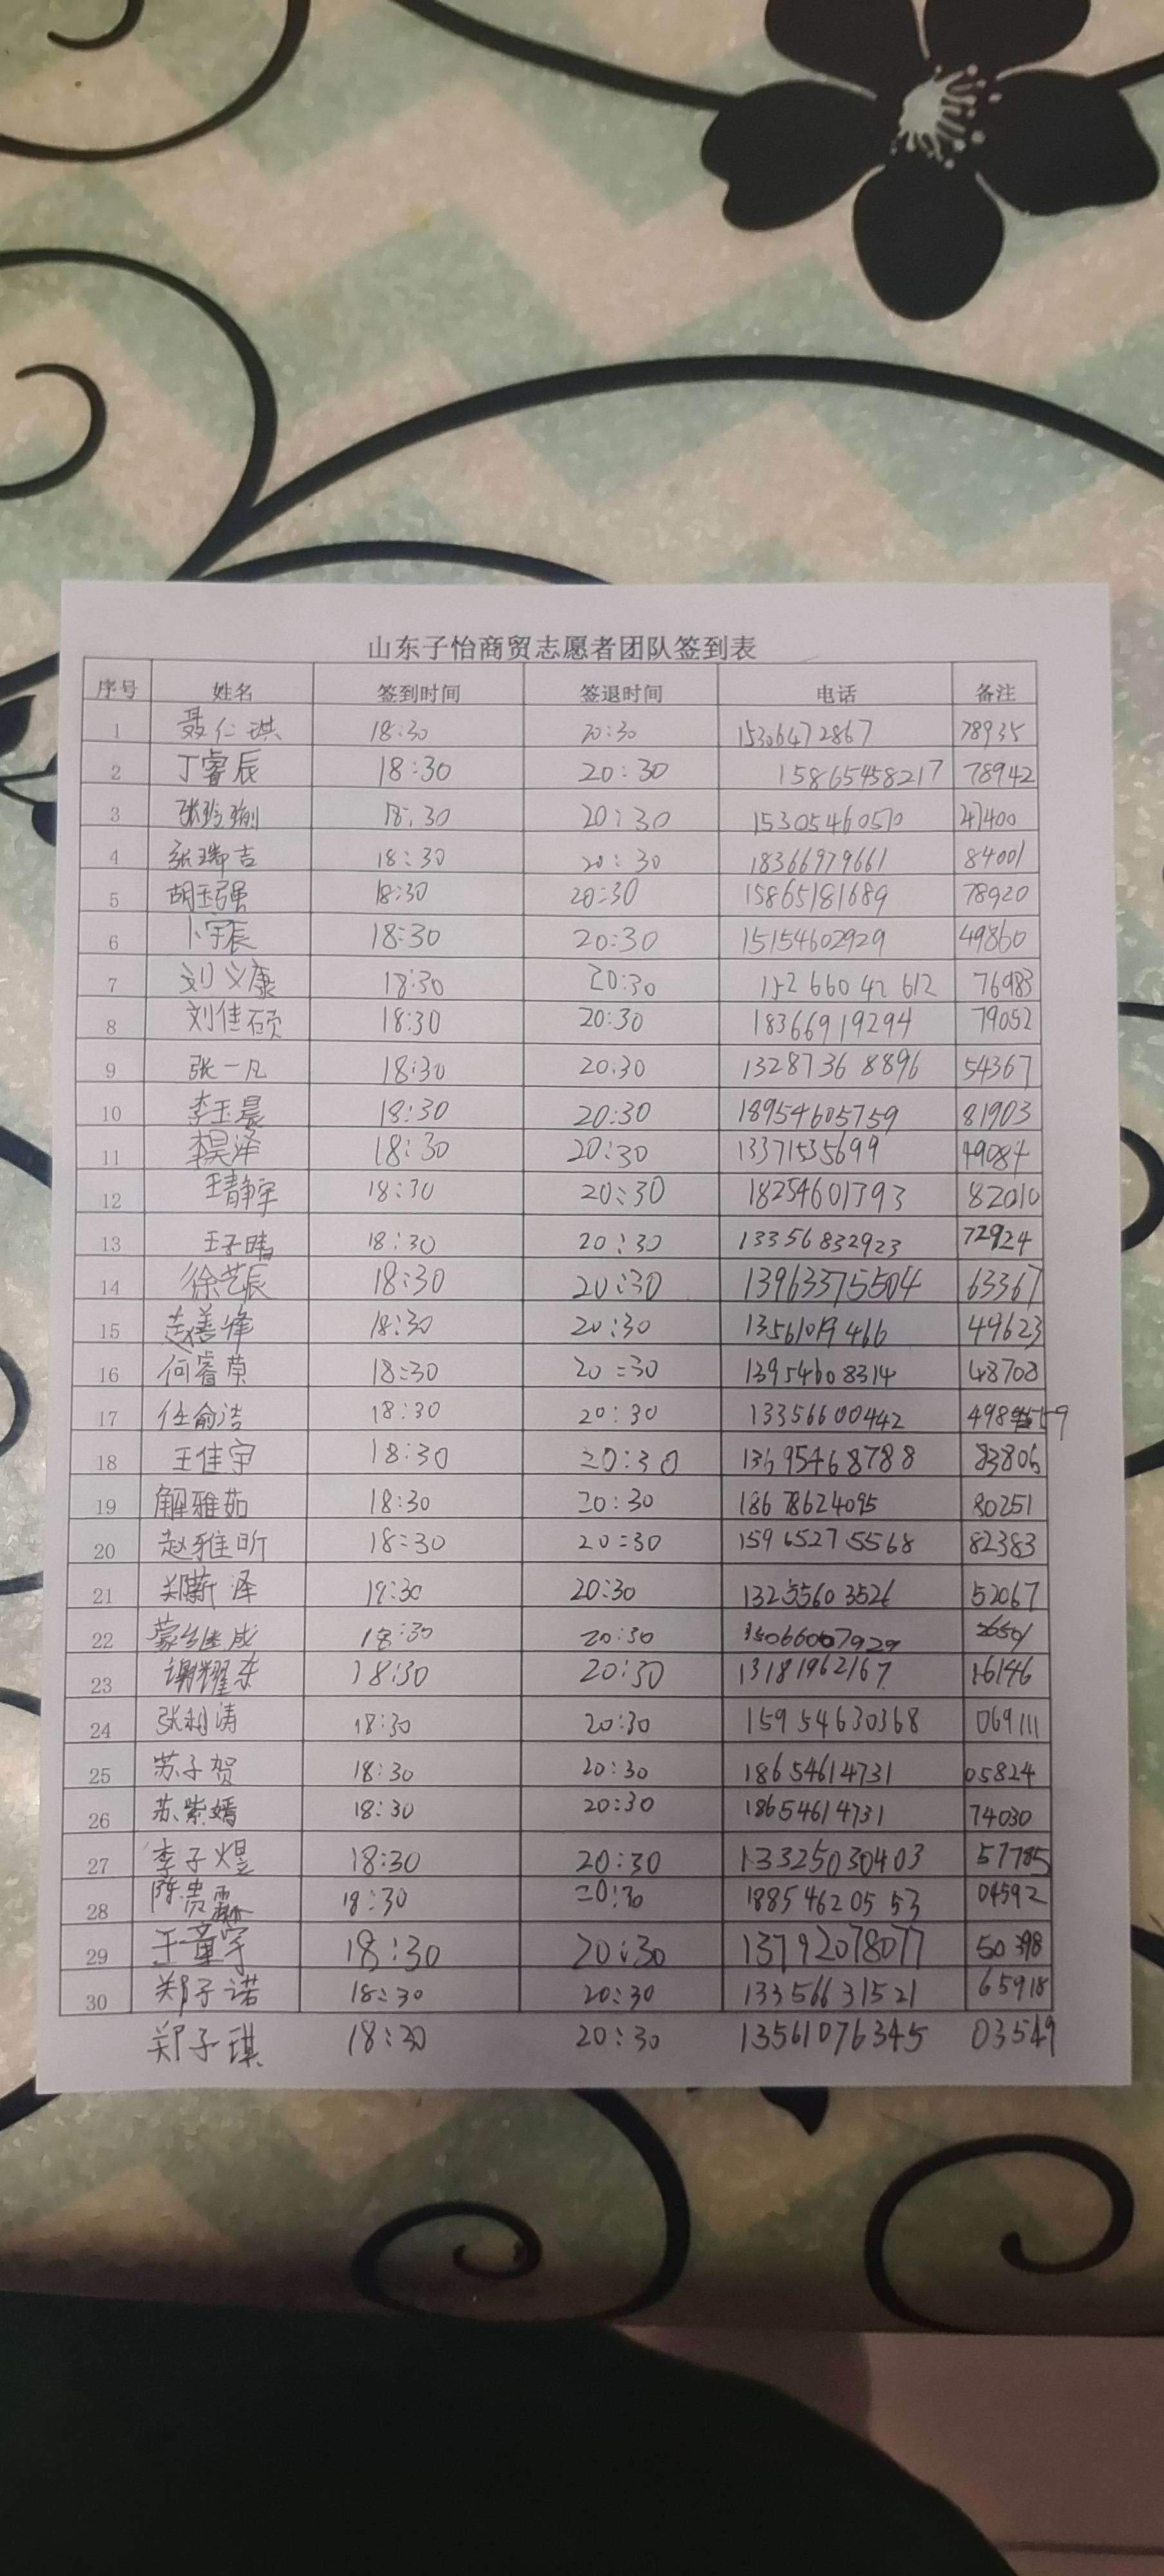 山东子怡商贸志愿者团队签到表
序号 姓名 签到时间 签退时间 电话 备注
1 聂仁琪 18:30 20:30 15306472867 78935
2 丁睿辰 18:30 20:30 15865458217 78942
3 18:30 20:30 15305460570 47400
4 张瑞吉 18:30 20:30 18366979661 84001
5 胡玉强 18:30 20:30 15865181689 78920
6 卜宇辰 18:30 20:30 15154602929 49860
7 刘义康 18:30 20:30 152 660 42 612 76983
8 刘佳硕 18:30 20:30 18366919294 79052
9 张一凡 18:30 20:30 1328736 8896 54367
10 李玉晨 18:30 20:30 18954605759 81903
11 李昊泽 18:30 20:30 13371535699 49084
12 王静宇 18:30 20:30 18254601393 82010
13 王子晴 18:30 20:30 13356832923 72924
14 徐艺辰 18:30 20:30 13963375504 63367
15 赵善峰 18:30 20:30 13561019466 49623
16 何睿荣 18:30 20:30 13954608314 48708
17 任俞洁 18:30 20:30 13356600442
18 王佳宇 18:30 20:30 13695468788 83806
19 解雅茹 18:30 20:30 18678624095 80251
20 赵雅昕 18:30 20:30 159 6527 5568 82383
21 郑薪泽 18:30 20:30 1325560 3526 52067
22 蒙继成 18:30 20:30 15066007929 26501
23 谢耀东 18:30 20:30 13181962167 16146
24 张相涛 18:30 20:30 159 54630368 069111
25 苏子贺 18:30 20:30 18654614731 05824
26 苏紫嫣 18:30 20:30 18654614731 74030
27 李子煜 18:30 20:30 13325030403 57785
28 陈贵霖 18:30 20:30 1885462 05 53 04592
29 王童宇 18:30 20:30 13792078077 50398
30 郑子诺 18:30 20:30 13356631521 65918
郑子琪 18:30 20:30 13561076345 03549